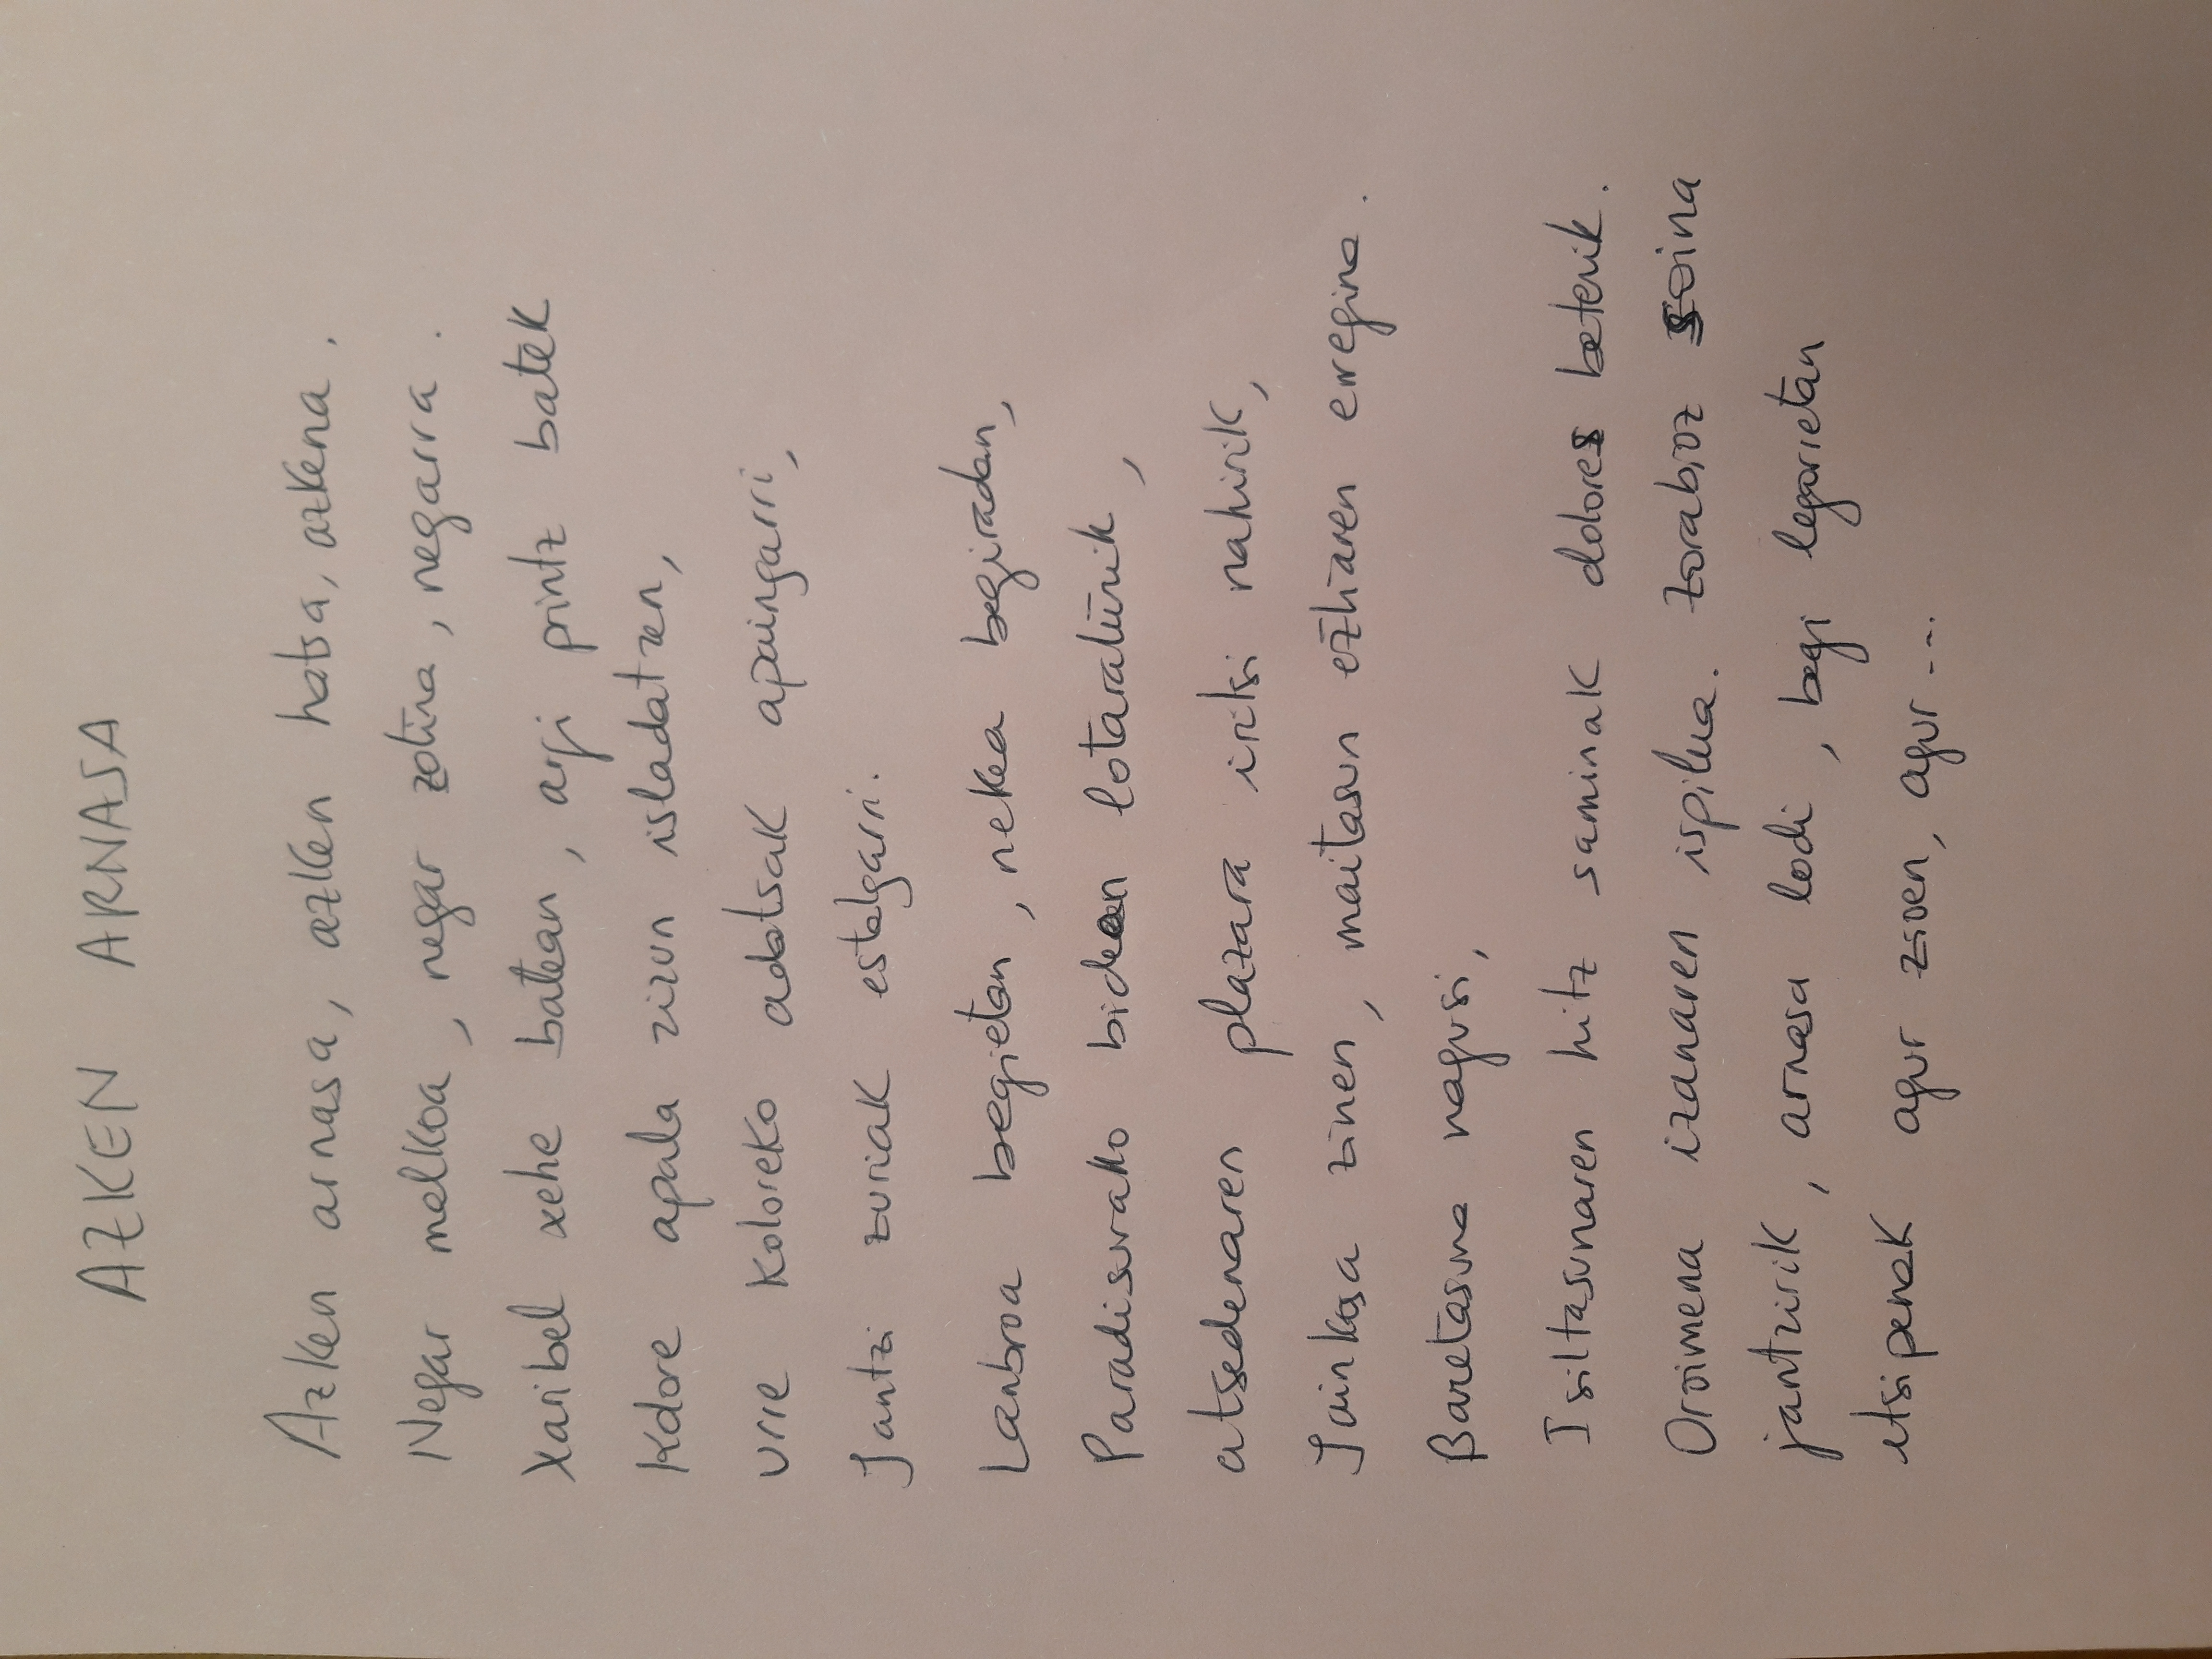 AZKEN ARNASA
Azken arnasa, azken hatsa, azkena.
Negar malkoa, negar zotina, negarra.
Xaribel xehe batean, argi printz batek
Kolore apala zizun isladatzen,
Urre koloreko adatsak apaingarri,
Jantzi zuriak estalgarri.
Lanbroa begietan, nekea begiradan,
Paradisurako bidean lotaratürik,
atsedenaren plazara iritsi nahirik,
Jainkosa zinen, maitasun eztiaren erregina.
Baretasuna nagusi,
Isiltasunaren hitz saminak dolores beterik.
Oroimena izanaren ispilua. Zorabioz soina
jantzirik, arnasa lodi, begi legorretan
etsipenak agur zioen, agur...